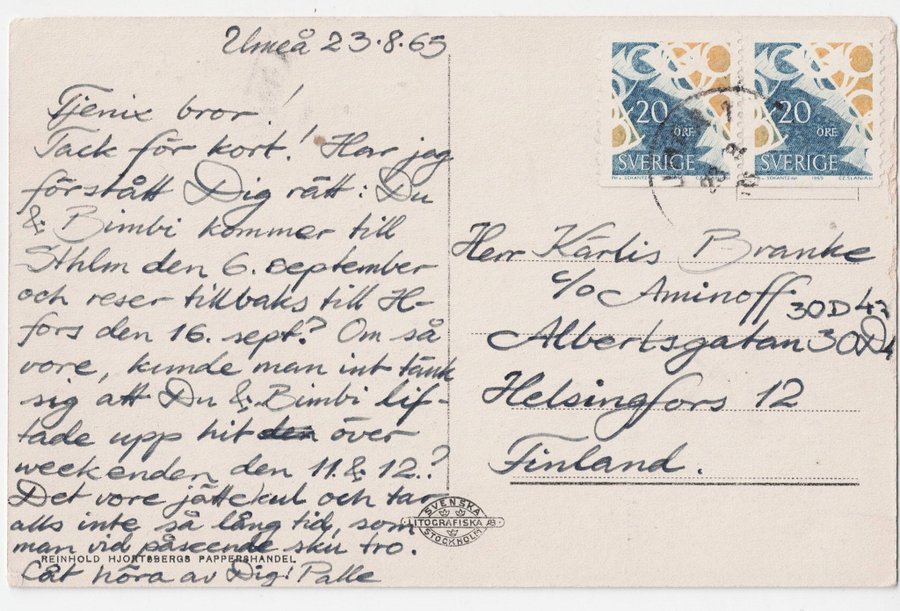 Umeå 23.8.65
Tjenix bror!
Tack för kort! Har jag
förstått Dig rätt: Du
& Bimbi kommer till
Sthlm den 6. september
och reser tillbaks till H-
fors den 16. sept? Om så
vore, kunde man int tänk
sig att Du & Bimbi lif-
tade upp hit över
weekenden den 11. & 12.?
Det vore jättekul och tar
alls inte så lång tid, som
man vid påseende sku tro.
Låt höra av Dig! Palle
REINHOLD HJORTSBERGS PAPPERSHANDEL
SVENSKA
LITOGRAFISKA AB
STOCKHOLM
20
ÖRE
SVERIGE
20
ÖRE
SVERIGE
Herr Karlis Branke
c/o Aminoff
30D47
Albertsgatan 30D4
Helsingfors 12
Finland.